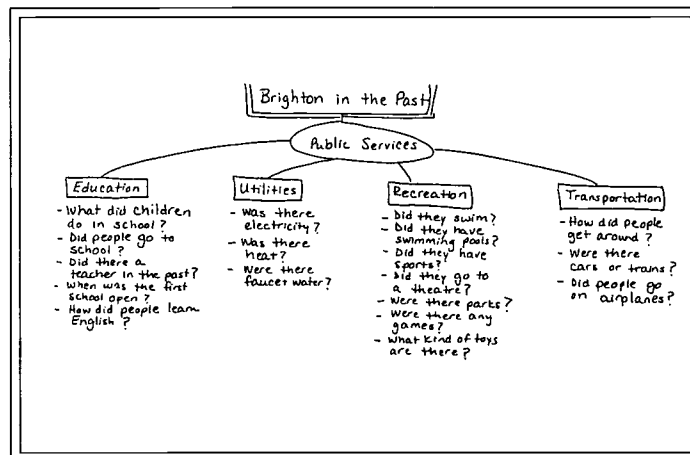 Brighton in the Past
Public Services
Education
- What did children
do in school?
- Did people go to
school?
- Did there a
teacher in the past?
- When was the first
school open?
- How did people learn
English?
Utilities
- Was there
electricity?
- Was there
heat?
- Were there
faucet water?
Recreation
- Did they swim?
- Did they have
swimming pools?
- Did they have
sports?
- Did they go to
a theatre?
- Were there parks?
- Were there any
games?
- What kind of toys
are there?
Transportation
- How did people
get around?
- Were there
cars or trains?
- Did people go
on airplanes?